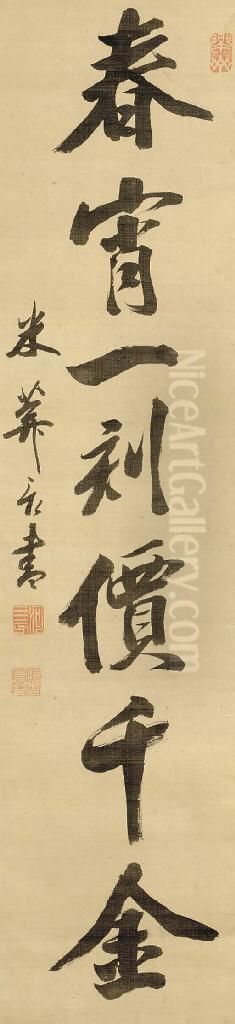 春宵一刻價千金
米葊亥書
NiceArtGallery.com